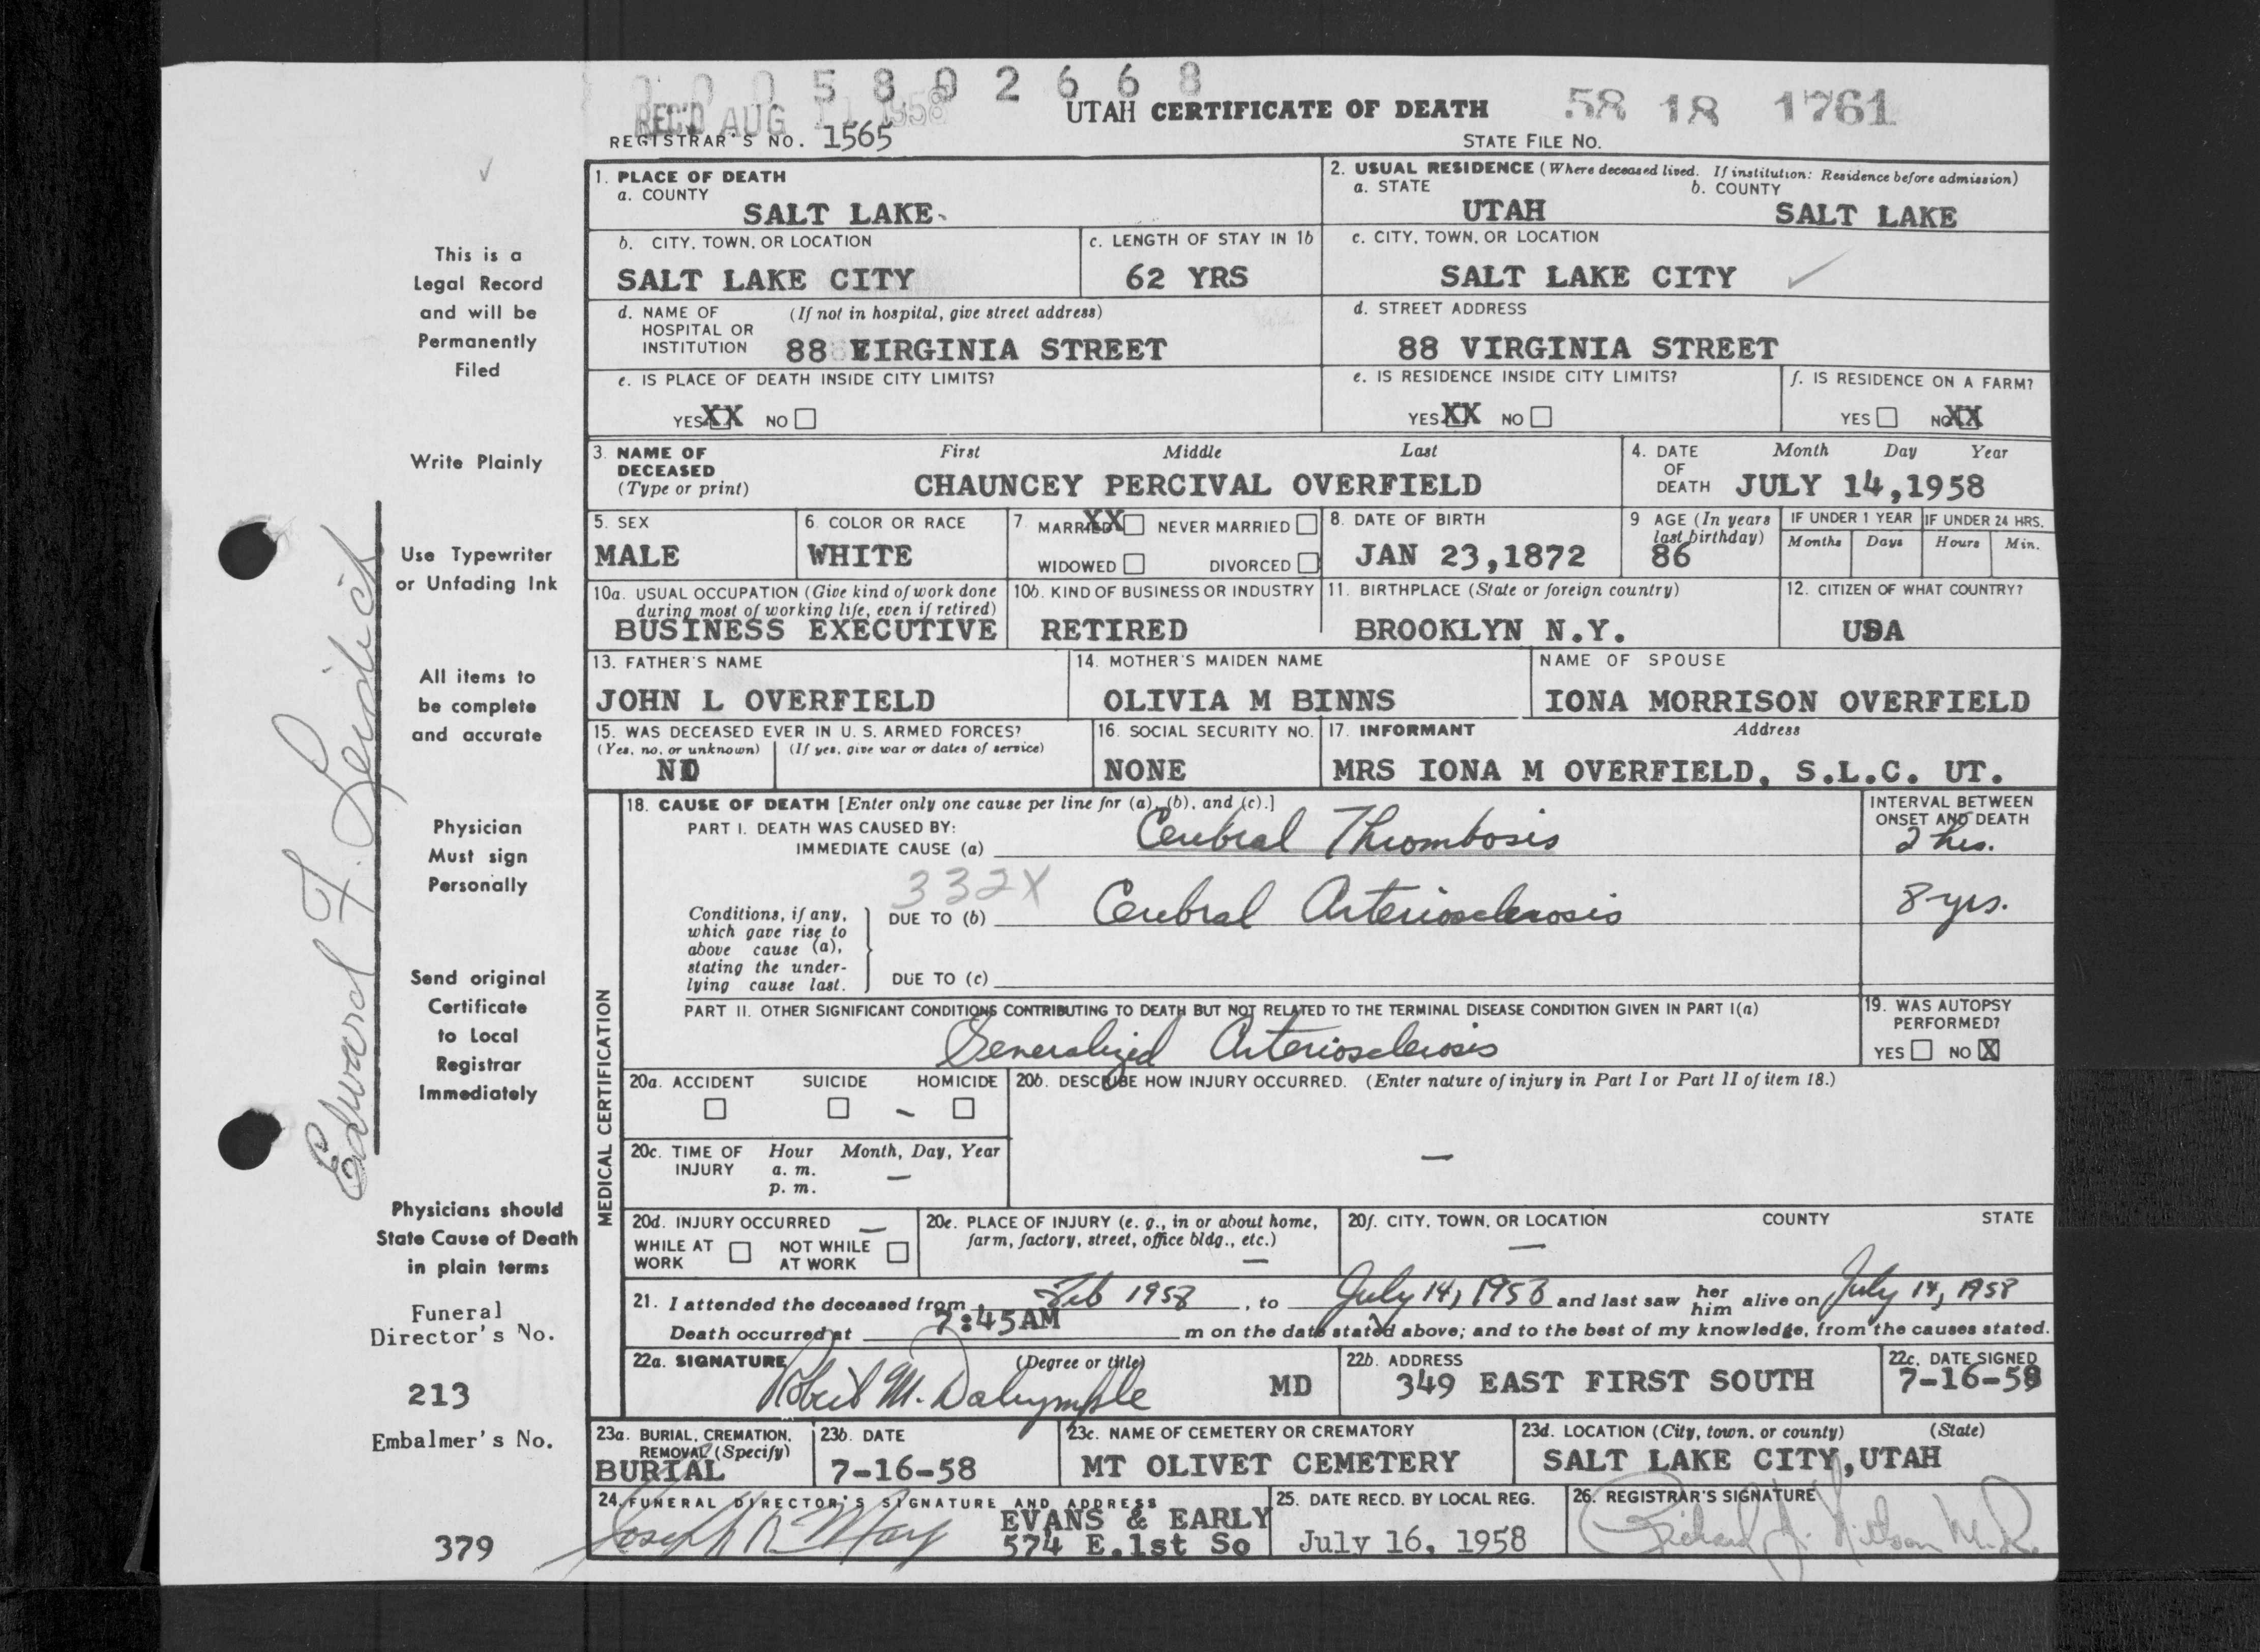 0 0 0 5 8 0 2 6 6 8
REC'D AUG 11 1958
UTAH CERTIFICATE OF DEATH 58 18 1761
REGISTRAR'S NO. 1565 STATE FILE NO.
1. PLACE OF DEATH
a. COUNTY
SALT LAKE
2. USUAL RESIDENCE (Where deceased lived. If institution: Residence before admission)
a. STATE b. COUNTY
UTAH SALT LAKE
b. CITY, TOWN, OR LOCATION
SALT LAKE CITY
c. LENGTH OF STAY IN 1b
62 YRS
c. CITY, TOWN, OR LOCATION
SALT LAKE CITY
d. NAME OF (If not in hospital, give street address)
HOSPITAL OR
INSTITUTION 88 VIRGINIA STREET
d. STREET ADDRESS
88 VIRGINIA STREET
e. IS PLACE OF DEATH INSIDE CITY LIMITS?
YES XX NO
e. IS RESIDENCE INSIDE CITY LIMITS?
YES XX NO
f. IS RESIDENCE ON A FARM?
YES NO XX
3. NAME OF First Middle Last
DECEASED
(Type or print) CHAUNCEY PERCIVAL OVERFIELD
4. DATE Month Day Year
OF
DEATH JULY 14,1958
5. SEX
MALE
6. COLOR OR RACE
WHITE
7. MARRIED XX NEVER MARRIED
WIDOWED DIVORCED
8. DATE OF BIRTH
JAN 23,1872
9 AGE (In years
last birthday)
86
IF UNDER 1 YEAR IF UNDER 24 HRS.
Months Days Hours Min.
10a. USUAL OCCUPATION (Give kind of work done
during most of working life, even if retired)
BUSINESS EXECUTIVE
10b. KIND OF BUSINESS OR INDUSTRY
RETIRED
11. BIRTHPLACE (State or foreign country)
BROOKLYN N.Y.
12. CITIZEN OF WHAT COUNTRY?
USA
13. FATHER'S NAME
JOHN L OVERFIELD
14. MOTHER'S MAIDEN NAME
OLIVIA M BINNS
NAME OF SPOUSE
IONA MORRISON OVERFIELD
15. WAS DECEASED EVER IN U. S. ARMED FORCES?
(Yes, no, or unknown) (If yes, give war or dates of service)
NO
16. SOCIAL SECURITY NO.
NONE
17. INFORMANT Address
MRS IONA M OVERFIELD, S.L.C. UT.
MEDICAL CERTIFICATION
18. CAUSE OF DEATH [Enter only one cause per line for (a), (b), and (c).]
PART I. DEATH WAS CAUSED BY:
IMMEDIATE CAUSE (a) Cerebral Thrombosis
INTERVAL BETWEEN
ONSET AND DEATH
2 hrs.
332X
Conditions, if any,
which gave rise to
above cause (a),
stating the under-
lying cause last.
DUE TO (b) Cerebral Arteriosclerosis 8 yrs.
DUE TO (c)
PART II. OTHER SIGNIFICANT CONDITIONS CONTRIBUTING TO DEATH BUT NOT RELATED TO THE TERMINAL DISEASE CONDITION GIVEN IN PART I(a)
Generalized Arteriosclerosis
19. WAS AUTOPSY
PERFORMED?
YES NO X
20a. ACCIDENT SUICIDE HOMICIDE
20b. DESCRIBE HOW INJURY OCCURRED. (Enter nature of injury in Part I or Part II of item 18.)
20c. TIME OF Hour Month, Day, Year
INJURY a. m.
p. m.
20d. INJURY OCCURRED
WHILE AT NOT WHILE
WORK AT WORK
20e. PLACE OF INJURY (e. g., in or about home,
farm, factory, street, office bldg., etc.)
20f. CITY, TOWN, OR LOCATION COUNTY STATE
21. I attended the deceased from Feb 1958, to July 14, 1958 and last saw her him alive on July 14, 1958
Death occurred at 7:45AM m on the date stated above; and to the best of my knowledge, from the causes stated.
22a. SIGNATURE (Degree or title)
Robert M. Dalrymple MD
22b. ADDRESS
349 EAST FIRST SOUTH
22c. DATE SIGNED
7-16-58
23a. BURIAL, CREMATION,
REMOVAL (Specify)
BURIAL
23b. DATE
7-16-58
23c. NAME OF CEMETERY OR CREMATORY
MT OLIVET CEMETERY
23d. LOCATION (City, town, or county) (State)
SALT LAKE CITY, UTAH
24. FUNERAL DIRECTOR'S SIGNATURE AND ADDRESS
Joseph
EVANS & EARLY
574 E.1st So
25. DATE RECD. BY LOCAL REG.
July 16, 1958
26. REGISTRAR'S SIGNATURE
Richard
This is a
Legal Record
and will be
Permanently
Filed
Write Plainly
Use Typewriter
or Unfading Ink
All items to
be complete
and accurate
Physician
Must sign
Personally
Send original
Certificate
to Local
Registrar
Immediately
Physicians should
State Cause of Death
in plain terms
Funeral
Director's No.
213
Embalmer's No.
379
Edward F.